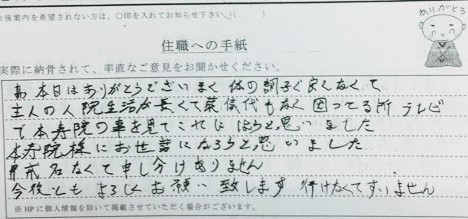 後案内を希望されない方は、〇印を入れてお知らせ下さい。(
ありがとう
住職への手紙
実際に納骨されて、率直なご意見をお聞かせください。
本日はありがとうございます 体の調子良くなくて
主人の入院生活が長くて葬儀代もなく困ってる所 テレビ
で本寿院の事を見てこれにしようと思いました
本寿院様にお世話になろうと思いました
戒名なくて申し分けありません
今後とも よろしくお願い致します 行けなくてすいません
※HPに個人情報を除いて掲載させていただく場合がございます。